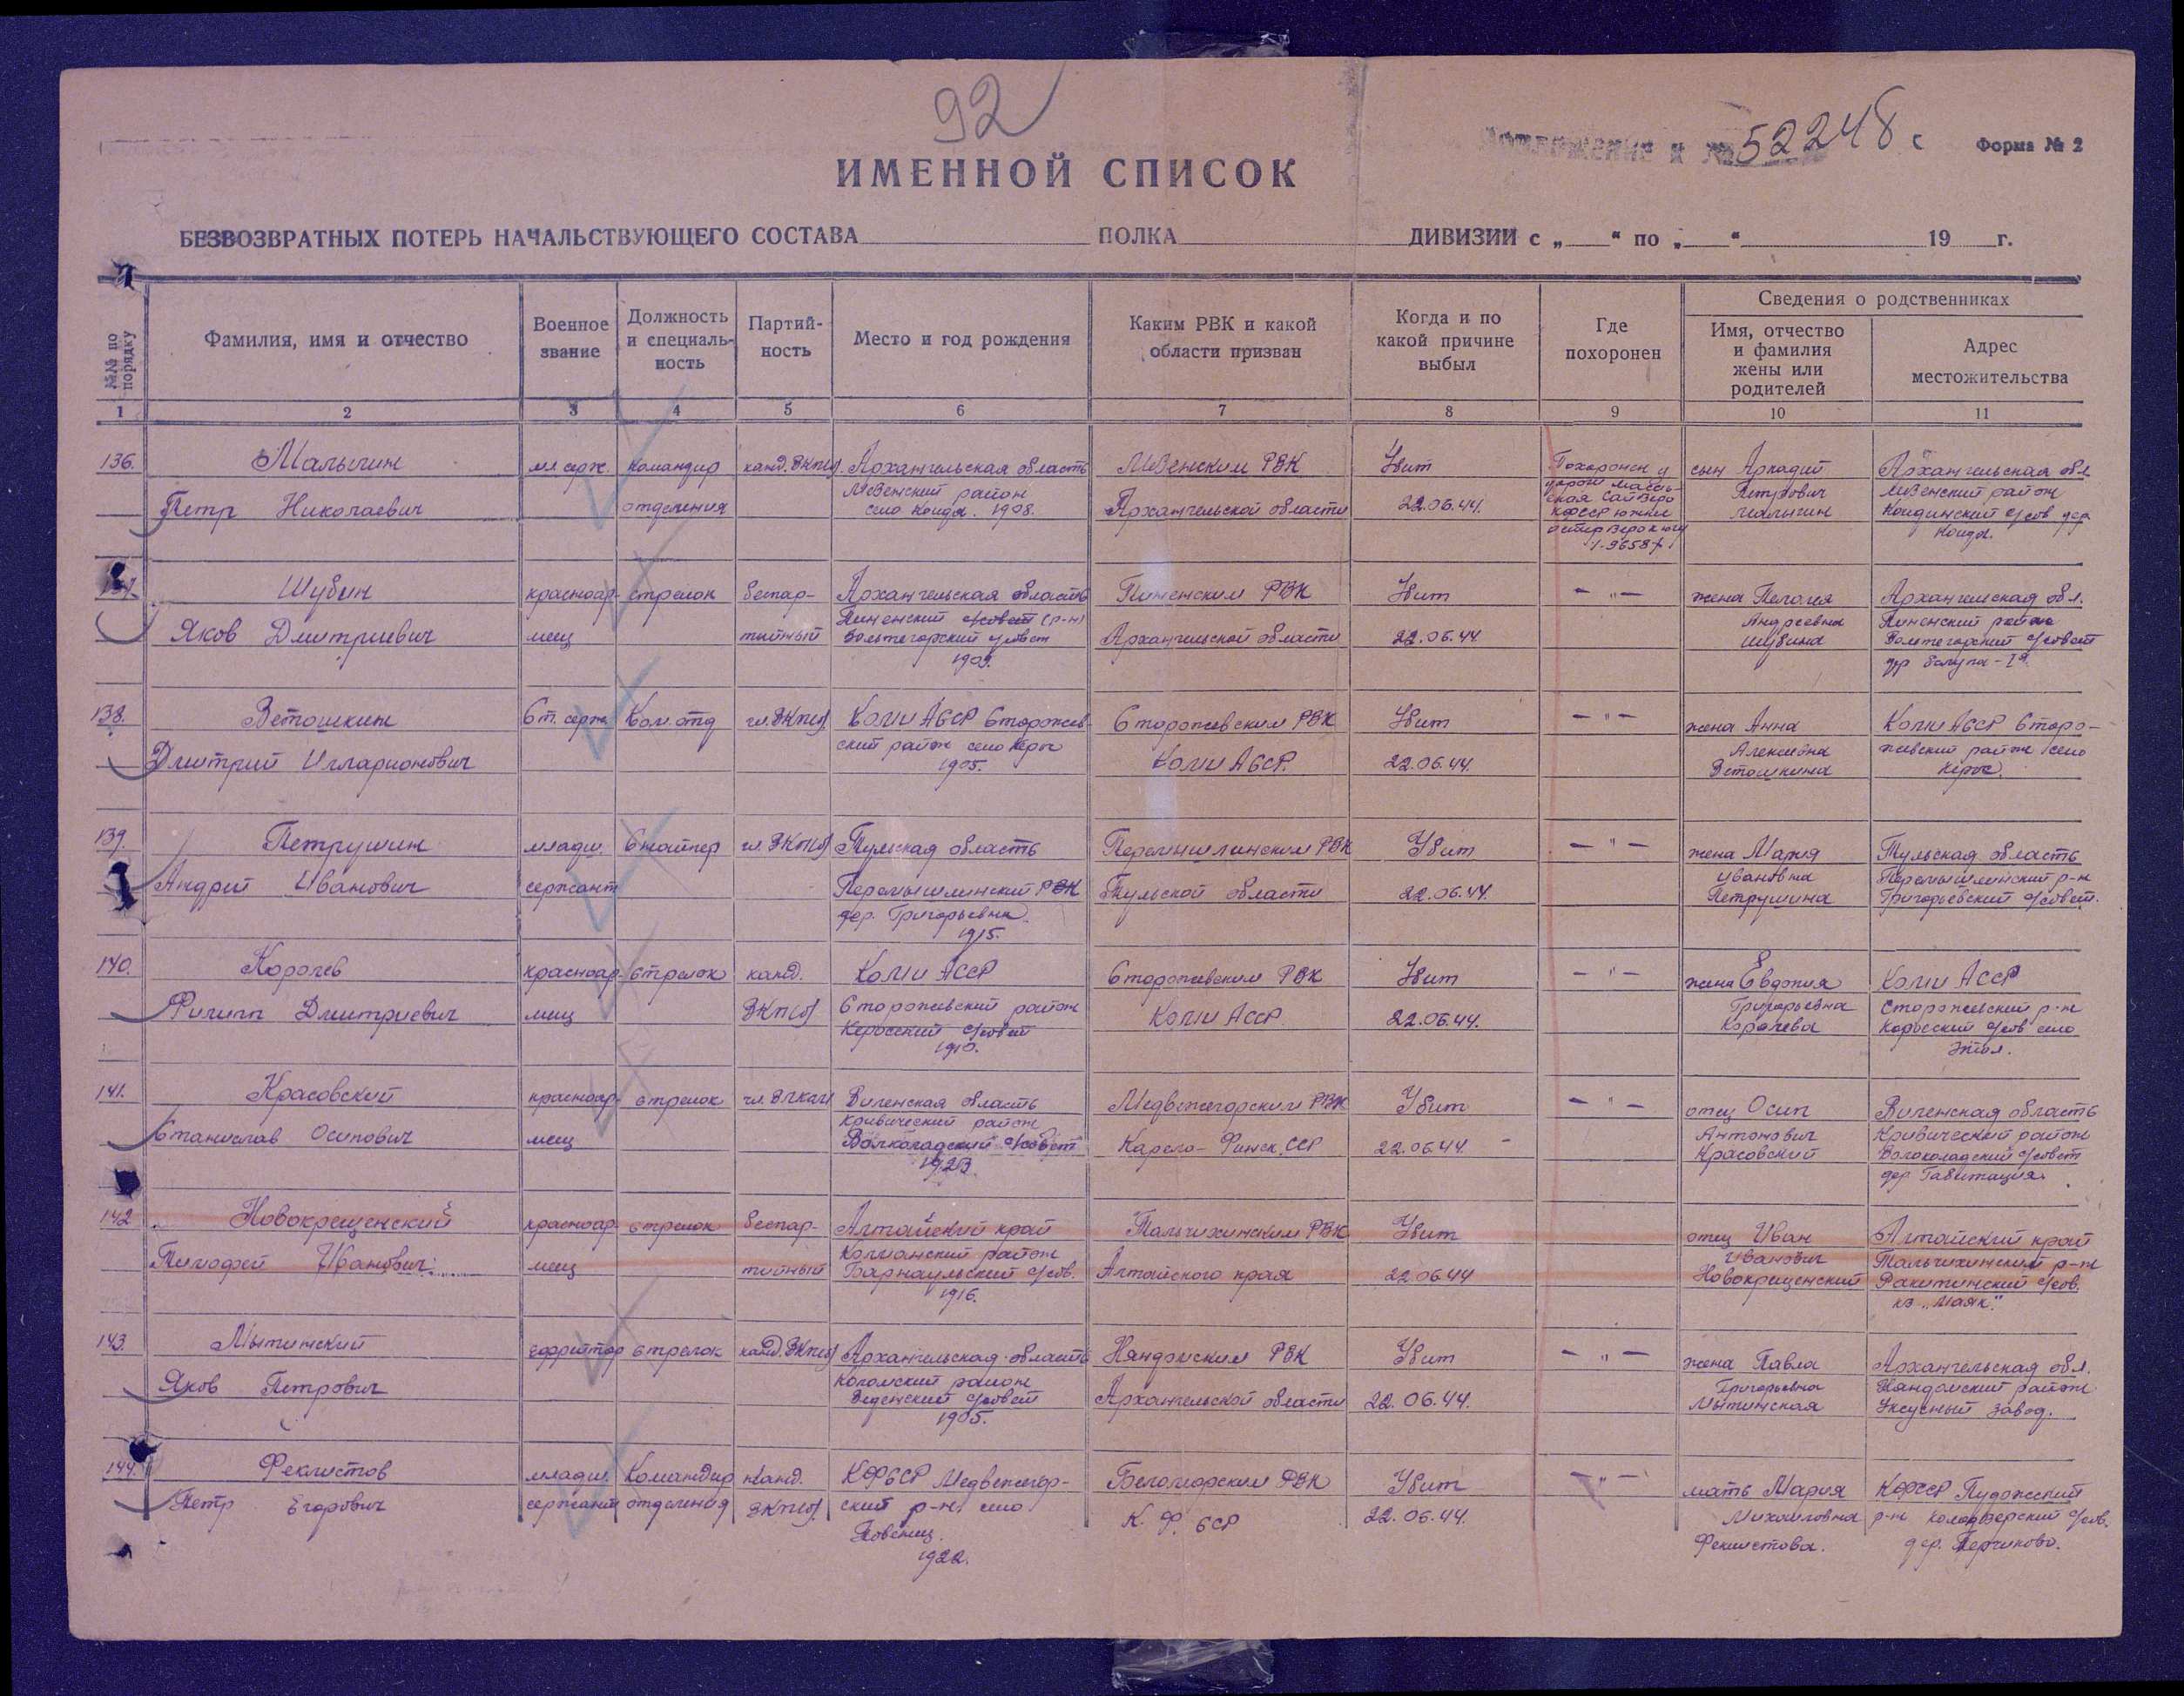 92
Приложение к № 52248 с
Форма № 2
ИМЕННОЙ СПИСОК
БЕЗВОЗВРАТНЫХ ПОТЕРЬ НАЧАЛЬСТВУЮЩЕГО СОСТАВА ПОЛКА ДИВИЗИИ с „ “ по „ “ 19 г.
№№ по порядку
Фамилия, имя и отчество
Военное звание
Должность и специаль-ность
Партий-ность
Место и год рождения
Каким РВК и какой области призван
Когда и по какой причине выбыл
Где похоронен
Сведения о родственниках
Имя, отчество и фамилия жены или родителей
Адрес местожительства
1 2 3 4 5 6 7 8 9 10 11
136. Малыгин мл серж. командир канд. ВКП(б). Архангельская область Мезенским РВК Убит Похоронен у сын Аркадий Архангельская обл
Мезенский район
Петр Николаевич отделения село Койда. 1908. Архангельской области 22.06.44. Петрович Мезенский район
КФССР южнее Малыгин Койдинский с/сов дер
Койда.
137. Шубин красноар- стрелок беспар- Архангельская область Пинежским РВК Убит — " — жена Пелагея Архангельская обл.
Пинежский совет (р-н) Андреевна Пинежский район
Яков Дмитриевич меец тийный с/совет Архангельской области 22.06.44 Шубина с/совет
1909. дер
138. Ветошкин Ст. серж. Ком. отд чл. ВКП(б). Коми АССР Сторожев- Сторожевским РВК Убит — " — жена Анна Коми АССР Сторо-
ский район село Керос Алексеевна жевский район село
Дмитрий Илларионович 1905. Коми АССР. 22.06.44. Ветошкина Керос.
139. Петрушин младш. Снайпер чл. ВКП(б) Тульская область Перемышлинским РВК Убит — " — жена Мария Тульская область
Андрей Иванович сержант Перемышлинский РВК Тульской области 22.06.44. Ивановна Перемышлинский р-н
дер. Григорьевка Петрушина Григорьевский с/совет.
1915.
140. Королев красноар- стрелок канд. Коми АССР Сторожевским РВК Убит — " — жена Евдокия Коми АССР
Филипп Дмитриевич меец ВКП(б) Сторожевский район Коми АССР 22.06.44. Григорьевна Сторожевский р-н
Керосский с/совет Королева Керосский с/сов село
1910.
141. Красовский красноар- стрелок чл. ВЛКСМ Виленская область Медвежегорским РВК Убит — " — отец Осип Виленская область
Кривический район Антонович Кривический район
Станислав Осипович меец с/совет Карело-Финск. ССР 22.06.44. Красовский с/совет
1923. дер Габитация.
142 Новокрещенский красноар- стрелок беспар- Алтайский край Тальчихинским РВК Убит отец Иван Алтайский край
Калманский район Иванович Тальчихинский р-н
Тимофей Иванович меец тийный Барнаульский с/сов. Алтайского края 22.06.44 Новокрещенский Ракитинский с/сов.
1916. кз „Маяк“.
143. Мытинский ефрейтор стрелок канд. ВКП(б) Архангельская область Няндомским РВК Убит — " — жена Павла Архангельская обл.
район Григорьевна Няндомский район
Яков Петрович с/совет Архангельской области 22.06.44. Мытинская Уксусный завод.
1905.
144. Феклистов младш. Командир канд. КФССР Медвежегор- Беломорским РВК Убит — " — мать Мария КФССР Пудожский
Петр Егорович сержант отделения ВКП(б). ский р-н, село К.Ф. ССР 22.06.44. Михайловна р-н с/сов.
Повенец. Феклистова. дер.
1922.